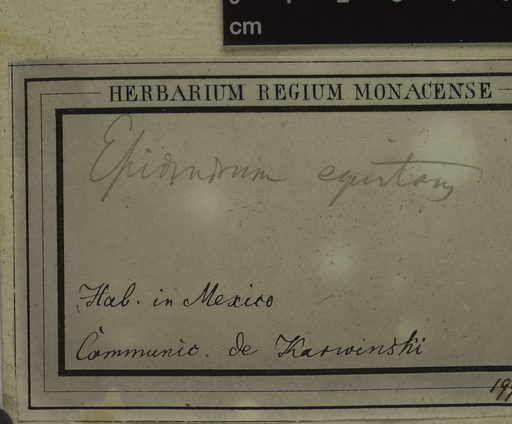 cm
HERBARIUM REGIUM MONACENSE
Epidendrum equitans
Hab. in Mexico
Communic. de Karwinski